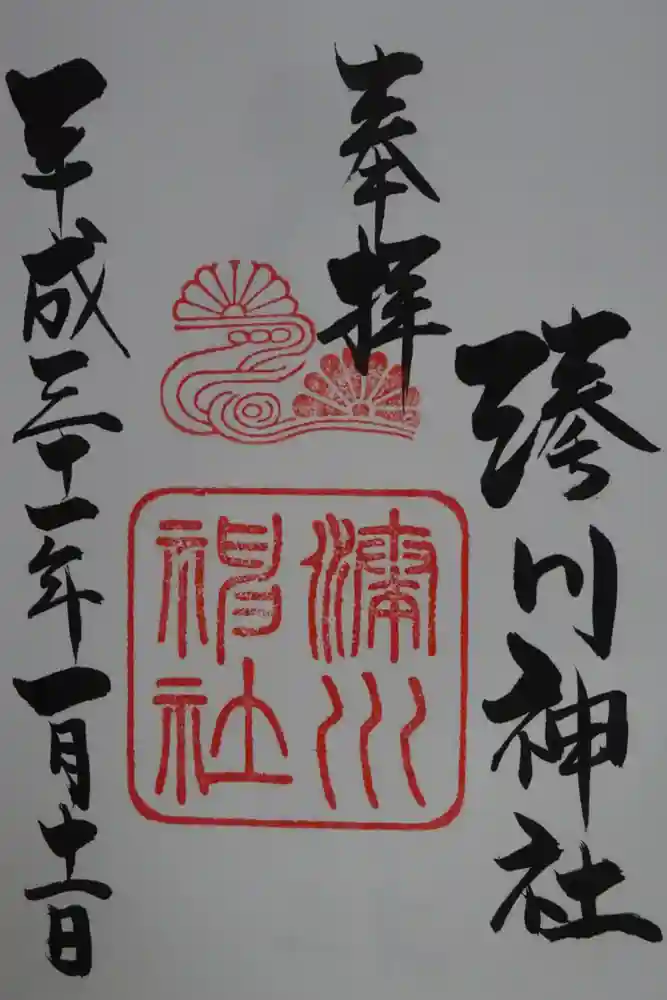 湊川神社
奉拝
湊川
神社
平成三十一年一月十一日